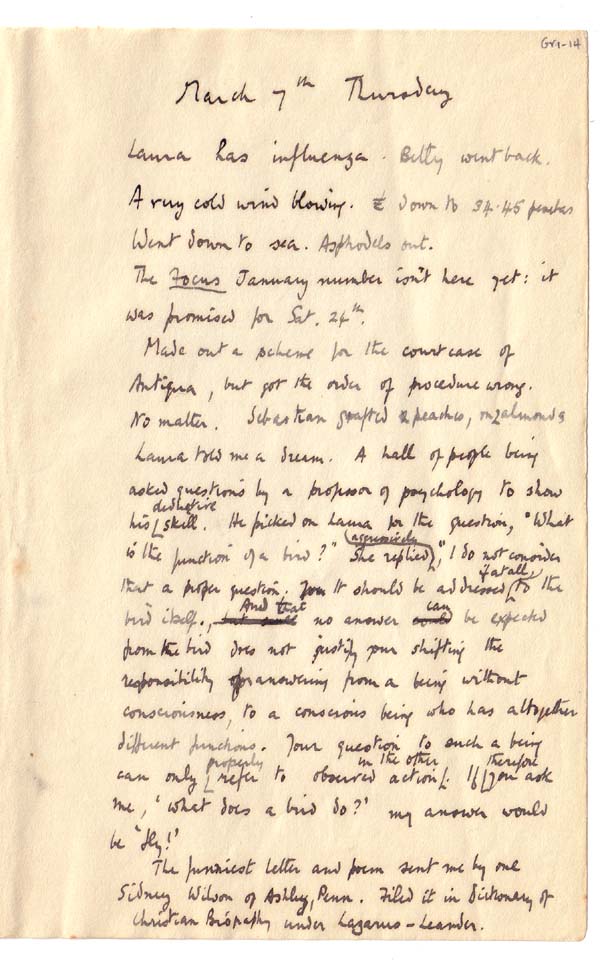 Gr1-14
March 7th Thursday
Laura has influenza. Betty went back.
A very cold wind blowing. £ down to 34.45 pesetas
Went down to sea. Asphodels out.
The Focus January number isn't here yet: it
was promised for Sat. 24th.
Made out a scheme for the court case of
Antigua, but got the order of procedure wrong.
No matter. Sebastian grafted 2 peaches, on 2 almonds
Laura told me a dream. A hall of people being
asked questions by a professor of psychology to show
deductive
his skill. He picked on Laura for the question, "What
aggressively
is the function of a bird?" She replied, "I do not consider
if at all,
that a proper question. You It should be addressed to the
And that can
bird itself, but such no answer could be expected
from the bird does not justify your shifting the
responsibility of answering from a being without
consciousness, to a conscious being who has altogether
different functions. Your question to such a being
properly in the other therefore
can only refer to observed action. If you ask
me, 'what does a bird do?' my answer would
be 'fly!'
The funniest letter and poem sent me by one
Sidney Wilson of Ashley, Penn. Filed it in Dictionary of
Christian Biography under Lazarus – Leander.